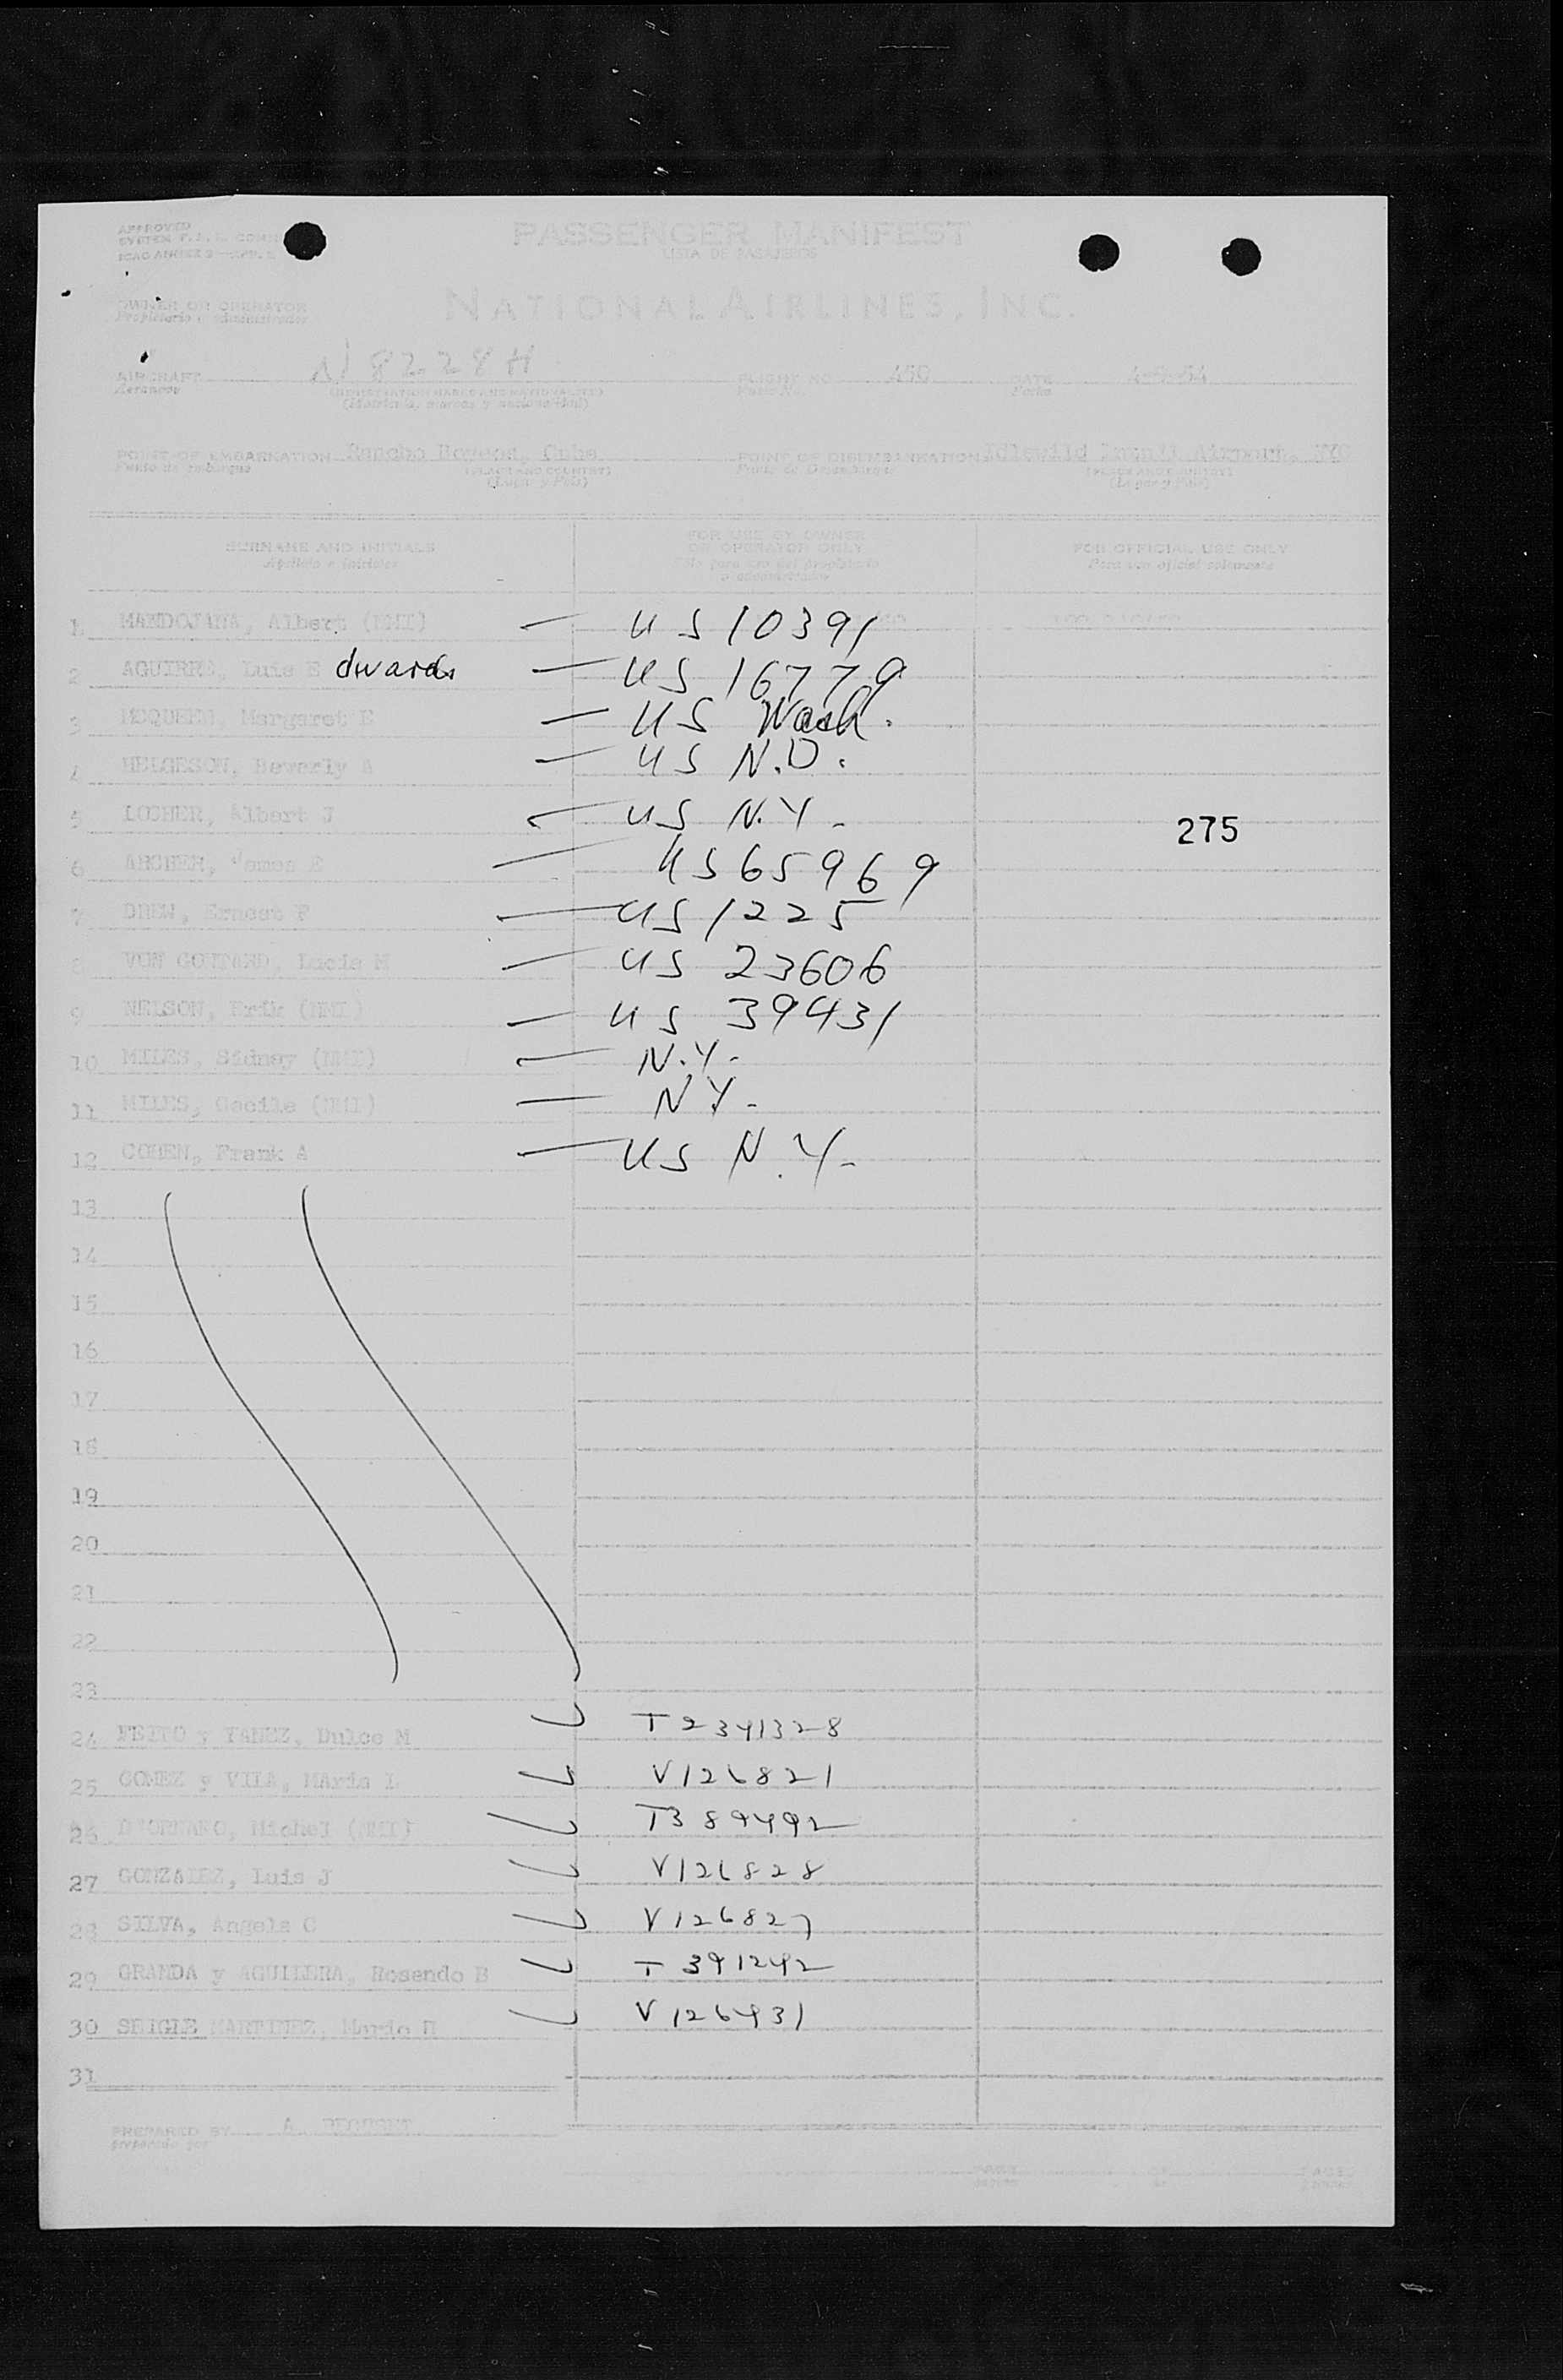 APPROVED
PASSENGER MANIFEST
LISTA DE PASAJEROS
OWNER OR OPERATOR
Propietario o administrador
NATIONAL AIRLINES, INC.
AIRCRAFT N 8228H FLIGHT NO. 450 DATE
Aeronave (Matricula, marcas y nacionalidad) Fecha
POINT OF EMBARKATION Rancho Boyeros, Cuba POINT OF DISEMBARKATION Idlewild Airport, NYC
Punto de embarque (PLACE AND COUNTRY) Punto de Desembarque (PLACE AND COUNTRY)
(Lugar y Pais) (Lugar y Pais)
SURNAME AND INITIALS FOR USE BY OWNER OR OPERATOR ONLY FOR OFFICIAL USE ONLY
Apellido e iniciales Sólo para uso del propietario o administrador Para uso oficial solamente
1 MANDOJANA, Albert (NMI) — US 10391
2 AGUIRRE, Luis E dwards — US 16779
3 MCQUEEN, Margaret E — US Wash.
4 HELGESON, Beverly A — US N.D.
5 LOCHER, Albert J — US N.Y.
275
6 ARCHER, James E — US 65969
7 DREW, Ernest F — US 1225
8 VON GONTARD, Lucie M — US 23606
9 NELSON, Erik (NMI) — US 39431
10 MILES, Sidney (NMI) — N.Y.
11 MILES, Cecile (NMI) — NY.
12 COHEN, Frank A — US N.Y.
13
14
15
16
17
18
19
20
21
22
23
24 FEITO y YANEZ, Dulce M T2341328
25 GOMEZ y VILA, MAria L V126821
26 Michel (NMI) T389492
27 GONZALEZ, Luis J V126828
28 SILVA, Angela C V126827
29 GRANDA y AGUILERA, Rosendo B T391242
30 SEIGLE MARTINEZ, Mario H V126431
31
PREPARED BY A.
preparado por
PAGE OF PAGES